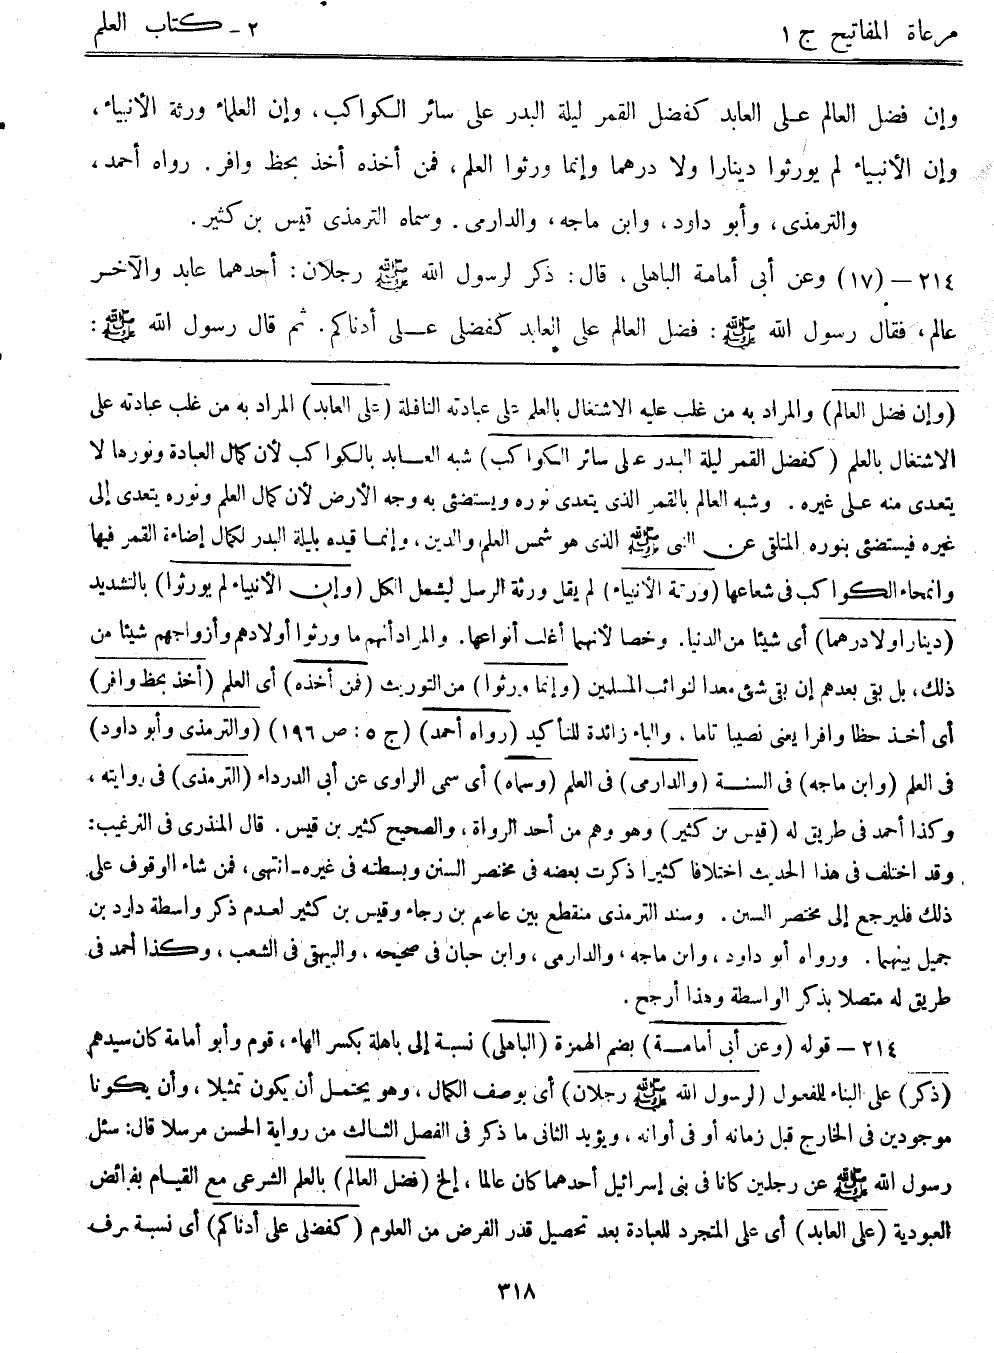 مرعاة المفاتيح ج ١
٢ - كتاب العلم
وإن فضل العالم على العابد كفضل القمر ليلة البدر على سائر الكواكب، وإن العلماء ورثة الأنبياء،
وإن الأنبياء لم يورثوا دينارا ولا درهما وإنما ورثوا العلم، فمن أخذه أخذ بحظ وافر. رواه أحمد،
والترمذى، وأبو داود، وابن ماجه، والدارمى. وسماه الترمذى قيس بن كثير.
٢١٤ – (١٧) وعن أبى أمامة الباهلى، قال: ذكر لرسول الله ﷺ رجلان: أحدهما عابد والآخر
عالم، فقال رسول الله ﷺ: فضل العالم على العابد كفضلى على أدناكم. ثم قال رسول الله ﷺ:
(وإن فضل العالم) والمراد به من غلب عليه الاشتغال بالعلم على عبادته النافلة (على العابد) المراد به من غلب عبادته على
الاشتغال بالعلم (كفضل القمر ليلة البدر على سائر الكواكب) شبه العابد بالكواكب لأن كمال العبادة ونورها لا
يتعدى منه على غيره. وشبه العالم بالقمر الذى يتعدى نوره ويستضئى به وجه الأرض لأن كمال العلم ونوره يتعدى إلى
غيره فيستضئى بنوره المتلقى عن النبى ﷺ الذى هو شمس العلم والدين، وإنما قيده بليلة البدر لكمال إضاءة القمر فيها
وانمحاء الكواكب فى شعاعها (ورثة الأنبياء) لم يقل ورثة الرسل ليشمل الكل (وإن الأنبياء لم يورثوا) بالتشديد
(دينارا ولا درهما) أى شيئا من الدنيا. وخصا لأنهما أغلب أنواعها. والمراد أنهم ما ورثوا أولادهم وأزواجهم شيئا من
ذلك، بل بقى بعدهم إن بقى شئى معدا لنوائب المسلمين (وإنما ورثوا) من التوريث (فمن أخذه) أى العلم (أخذ بحظ وافر)
أى أخذ حظا وافرا يعنى نصيبا تاما، والباء زائدة للتأكيد (رواه أحمد) (ج ٥: ص ١٩٦) (والترمذى وأبو داود)
فى العلم (وابن ماجه) فى السنة (والدارمى) فى العلم (وسماه) أى سمى الراوى عن أبى الدرداء (الترمذى) فى روايته،
وكذا أحمد فى طريق له (قيس بن كثير) وهو وهم من أحد الرواة، والصحيح كثير بن قيس. قال المنذرى فى الترغيب:
وقد اختلف فى هذا الحديث اختلافا كثيرا ذكرت بعضه فى مختصر السنن وبسطته فى غيره - انتهى، فمن شاء الوقوف على
ذلك فليرجع إلى مختصر السنن. وسند الترمذى منقطع بين عاصم بن رجاء وقيس بن كثير لعدم ذكر واسطة داود بن
جميل بينهما. ورواه أبو داود، وابن ماجه، والدارمى، وابن حبان فى صحيحه، والبيهقى فى الشعب، وكذا أحمد فى
طريق له متصلا بذكر الواسطة وهذا أرجح.
٢١٤ – قوله (وعن أبى أمامة) بضم الهمزة (الباهلى) نسبة إلى باهلة بكسر الهاء، قوم وأبو أمامة كان سيدهم
(ذكر) على البناء للمفعول (لرسول الله ﷺ رجلان) أى بوصف الكمال، وهو يحتمل أن يكون تمثيلا، وأن يكونا
موجودين فى الخارج قبل زمانه أو فى أوانه، ويؤيد الثانى ما ذكر فى الفصل الثالث من رواية الحسن مرسلا قال: سئل
رسول الله ﷺ عن رجلين كانا فى بنى إسرائيل أحدهما كان عالما، إلخ (فضل العالم) بالعلم الشرعى مع القيام بفرائض
العبودية (على العابد) أى على المتجرد للعبادة بعد تحصيل قدر الفرض من العلوم (كفضلى على أدناكم) أى نسبة شرف
٣١٨